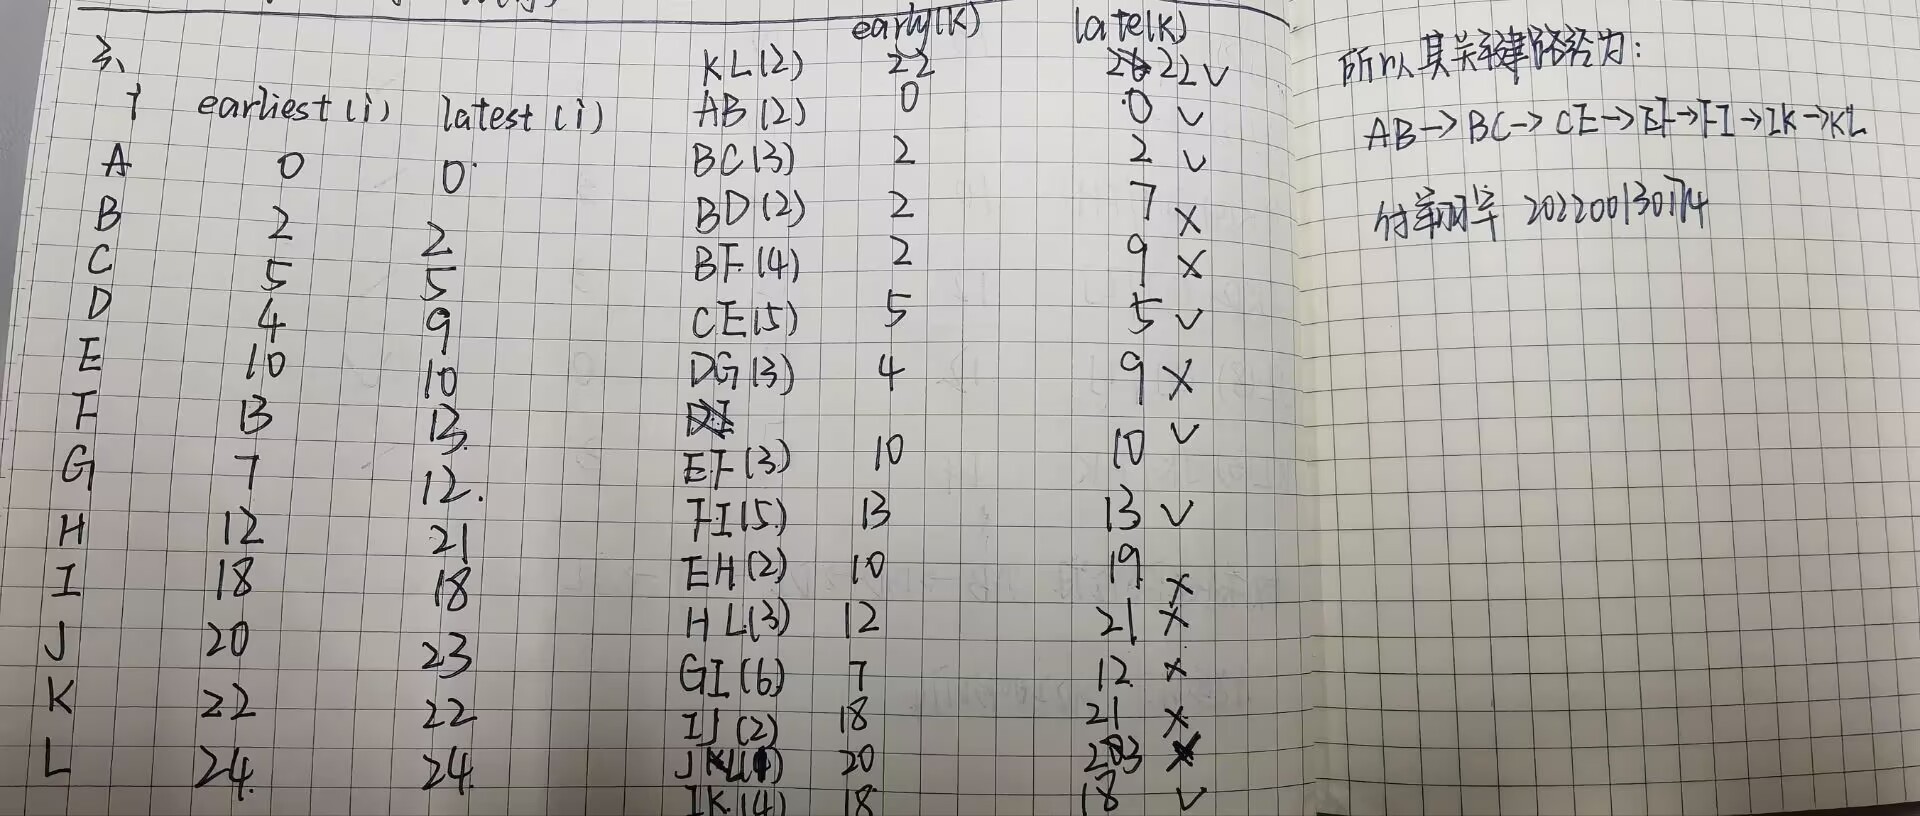 三、
i earliest(i) latest(i)
A 0 0
B 2 2
C 5 5
D 4 9
E 10 10
F 13 13
G 7 12
H 12 21
I 18 18
J 20 23
K 22 22
L 24 24
early(K) late(K)
KL(2) 22 22 ✓
AB(2) 0 0 ✓
BC(3) 2 2 ✓
BD(2) 2 7 ×
BF(4) 2 9 ×
CE(5) 5 5 ✓
DG(3) 4 9 ×
EF(3) 10 10 ✓
FI(5) 13 13 ✓
EH(2) 10 19 ×
HL(3) 12 21 ×
GI(6) 7 12 ×
IJ(2) 18 21 ×
JL(1) 20 23 ×
IK(4) 18 18 ✓
所以其关键路径为:
AB→BC→CE→EF→FI→IK→KL